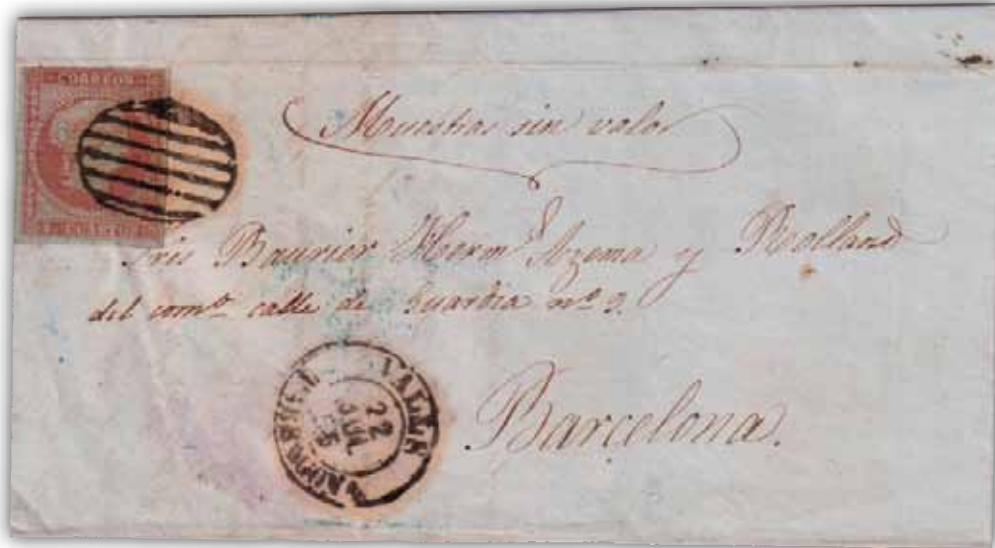 CORREOS
Muestras sin valor
Sres Baurier Herms Azema y Rolland
del como calle de Guardia no 9.
Barcelona.
VALLS
22
JUL
TARRAGONA